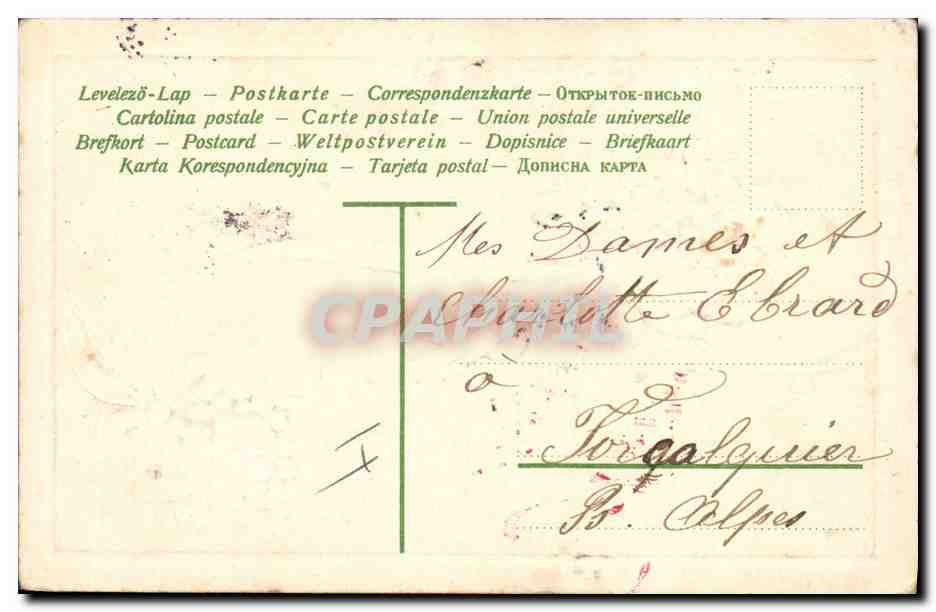 Levelező-Lap – Postkarte – Correspondenzkarte – Открытое-письмо
Cartolina postale – Carte postale – Union postale universelle
Brefkort – Postcard – Weltpostverein – Dopisnice – Briefkaart
Karta Korespondencyjna – Tarjeta postal – Дописна карта
Mes Dames et
Charlotte Ebrard
à
Forqalquier
Bs. Alpes
CPAPHIL